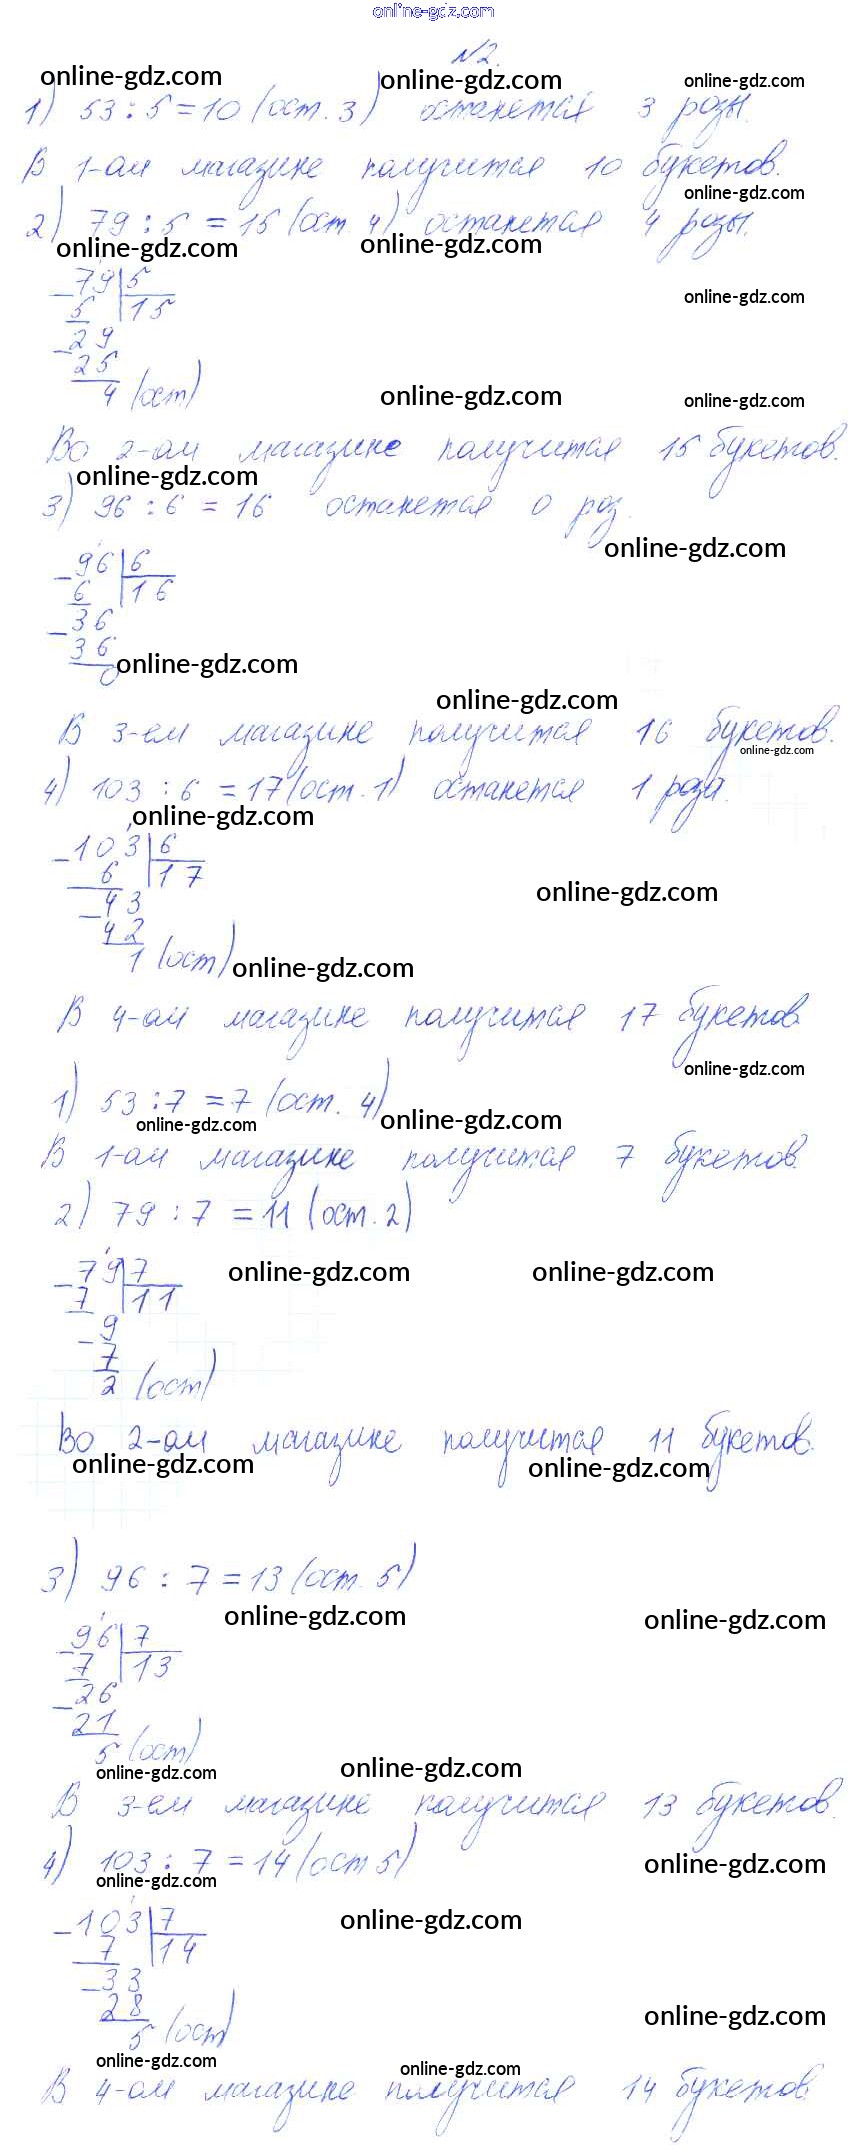 online-gdz.com
N2.
online-gdz.com online-gdz.com online-gdz.com
1) 53 : 5 = 10 (ост. 3) останется 3 розы.
В 1-ом магазине получится 10 букетов.
online-gdz.com
2) 79 : 5 = 15 (ост 4) останется 4 розы.
online-gdz.com online-gdz.com
- 79 | 5
5 | 15
online-gdz.com
- 29
25
4 (ост)
online-gdz.com online-gdz.com
Во 2-ом магазине получится 15 букетов.
online-gdz.com
3) 96 : 6 = 16 останется 0 роз.
online-gdz.com
- 96 | 6
6 | 16
- 36
36
0
online-gdz.com
online-gdz.com
В 3-ем магазине получится 16 букетов.
online-gdz.com
4) 103 : 6 = 17 (ост. 1) останется 1 роза.
online-gdz.com
- 103 | 6
6 | 17
online-gdz.com
- 43
42
1 (ост)
online-gdz.com
В 4-ом магазине получится 17 букетов
online-gdz.com
1) 53 : 7 = 7 (ост. 4)
online-gdz.com online-gdz.com
В 1-ом магазине получится 7 букетов
2) 79 : 7 = 11 (ост. 2)
online-gdz.com online-gdz.com
- 79 | 7
7 | 11
- 9
7
2 (ост)
Во 2-ом магазине получится 11 букетов.
online-gdz.com online-gdz.com
3) 96 : 7 = 13 (ост. 5)
online-gdz.com online-gdz.com
- 96 | 7
7 | 13
- 26
21
5 (ост)
online-gdz.com online-gdz.com
В 3-ем магазине получится 13 букетов.
4) 103 : 7 = 14 (ост 5)
online-gdz.com
online-gdz.com
online-gdz.com
- 103 | 7
7 | 14
- 33
28
5 (ост)
online-gdz.com
online-gdz.com online-gdz.com
В 4-ом магазине получится 14 букетов.